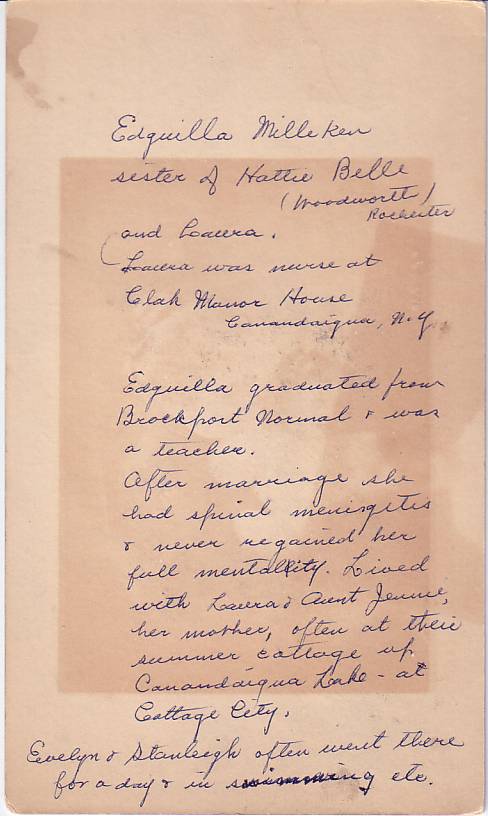 Edquilla Milliken
sister of Hattie Belle
(Woodworth)
Rochester
and Laura.
(Laura was nurse at
Clak Manor House
Canandaigua, N.Y.
Edquilla graduated from
Brockport Normal & was
a teacher.
After marriage she
had spinal menigitis
& never regained her
full mentality. Lived
with Laura & Aunt Jennie,
her mother, often at their
summer cottage up
Canandaigua Lake - at
Cottage City.
Evelyn & Stanleigh often went there
for a day & in swimming etc.